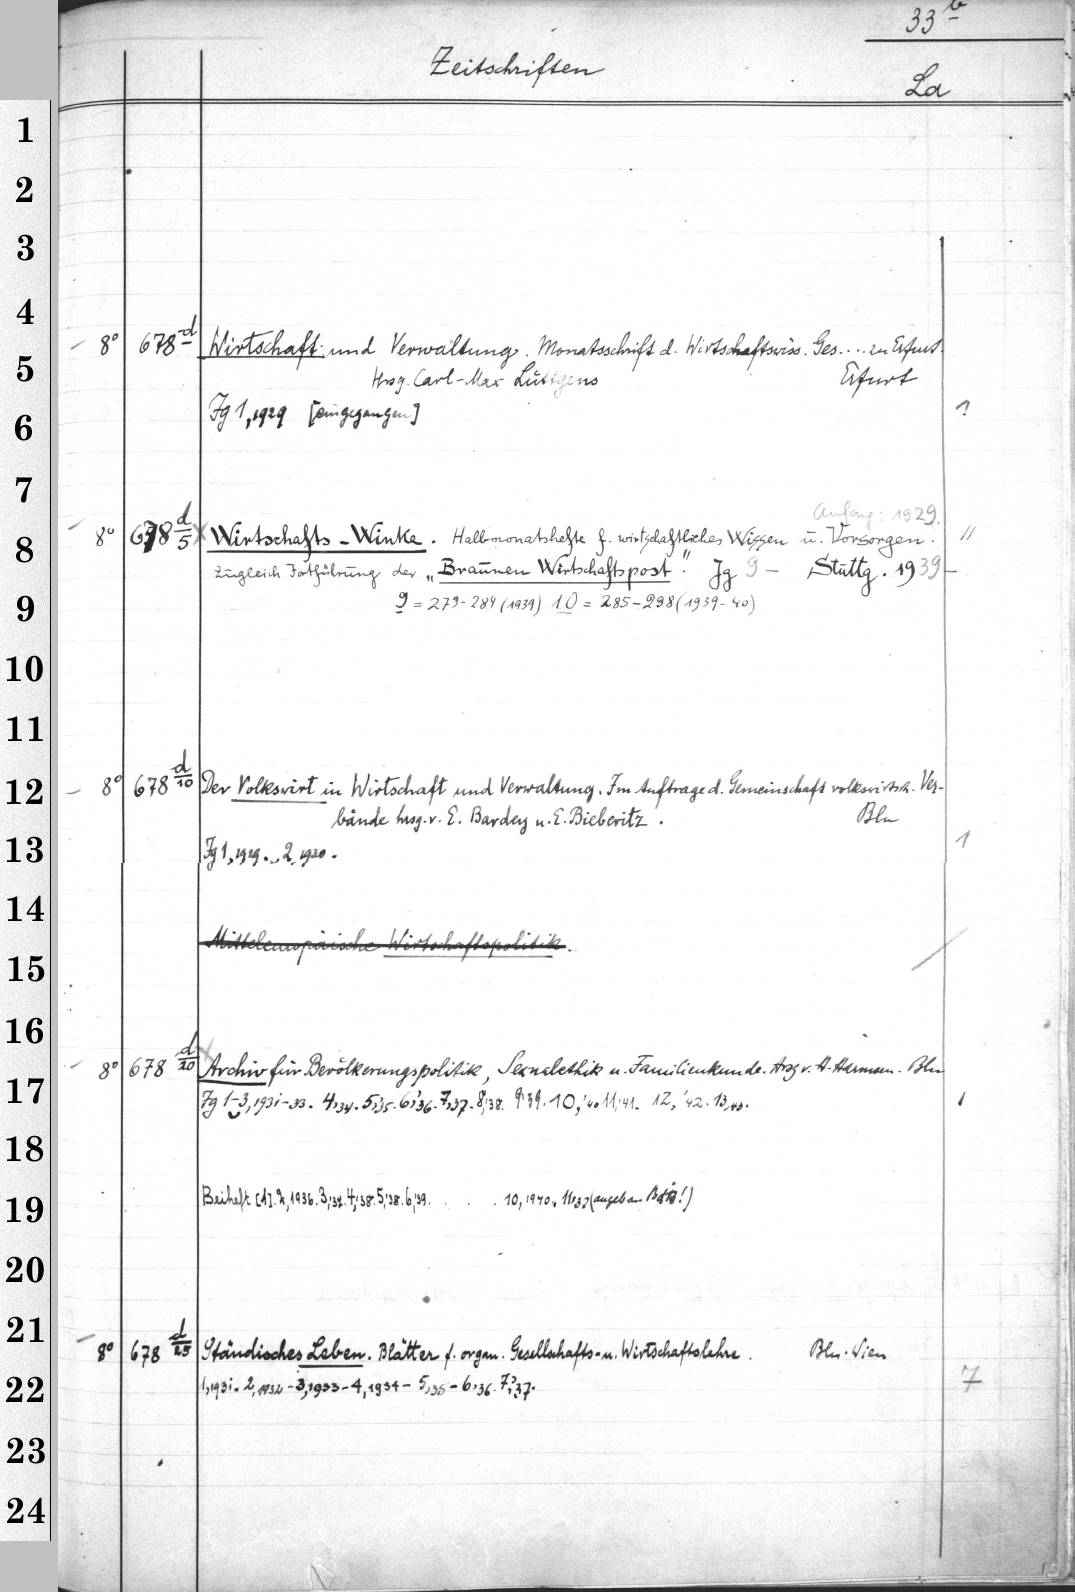 33 b
Zeitschriften
La
1
2
3
4
5
6
7
8
9
10
11
12
13
14
15
16
17
18
19
20
21
22
23
24
8° 678 d Wirtschaft und Verwaltung. Monatsschrift d. Wirtschaftswiss. Ges. ... zu Erfurt.
Hrsg. Carl-Max Lüttgens Erfurt
Jg 1, 1929 [eingegangen] 1
Anfang: 1929.
8° 678 d/5 x Wirtschafts-Winke. Halbmonatshefte f. wirtschaftliches Wissen u. Vorsorgen. "
Zugleich Fortführung der „Braunen Wirtschaftspost". Jg 9 - Stuttg. 1939-
9 = 279-284 (1939) 10 = 285-298 (1939-40)
8° 678 d/10 Der Volkswirt in Wirtschaft und Verwaltung. Im Auftrage d. Gemeinschaft volkswirtsch. Ver-
bände hrsg. v. E. Bardey u. E. Bieberitz. Bln
Jg 1, 1929. 2, 1930. 1
Mitteleuropäische Wirtschaftspolitik.
8° 678 d/20 x Archiv für Bevölkerungspolitik, Sexualethik u. Familienkunde. Hrsg v. H. Harmsen. Bln
Jg 1-3, 1931-33. 4,34. 5,'35. 6,'36. 7,37. 8,'38. 9,'39. 10,'40 11,'41. 12,'42. 13,43. 1
Beiheft [1]. 2, 1936. 3,'37. 4,'38. 5,'38. 6,'39. . . . 10, 1940.
8° 678 d/25 Ständisches Leben. Blätter f. organ. Gesellschafts- u. Wirtschaftslehre. Bln. Wien
1, 1931- 2, 1932 - 3, 1933 - 4, 1934 - 5,35 - 6,36. 7,'37. 7